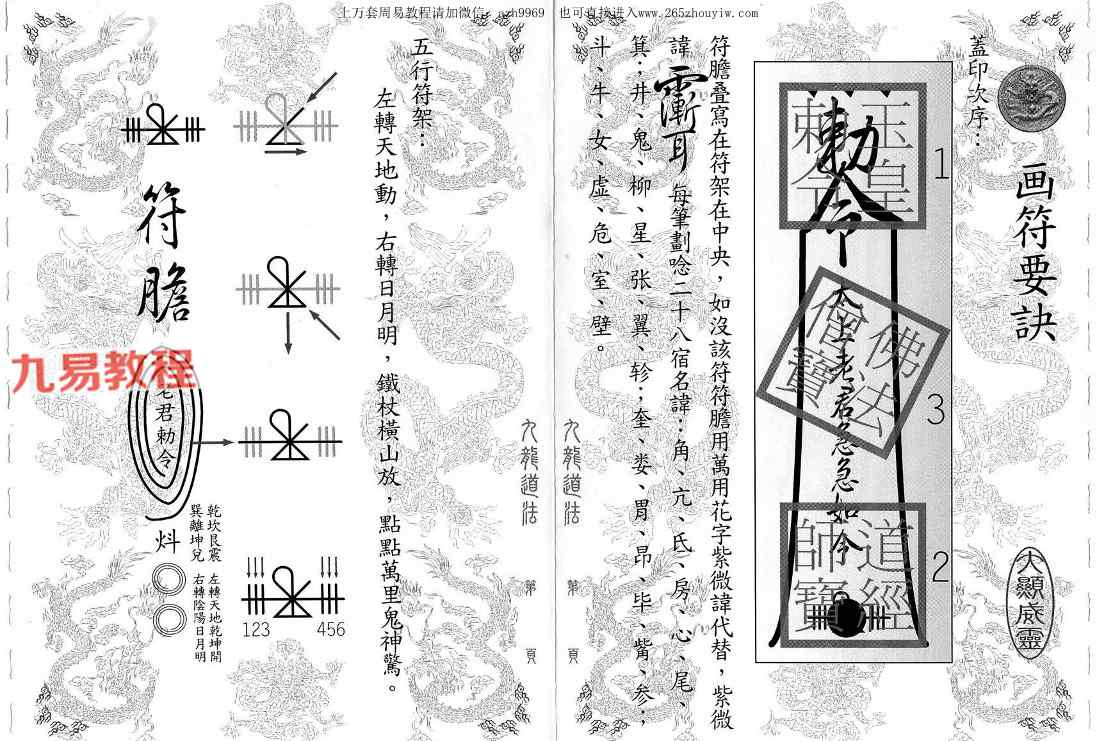 上万套周易教程请加微信：
也可直接进入www.265zhouyiw.com
画符要訣
大顯威靈
蓋印次序：
玉皇
敕令
勅令
太上老君急急如令
佛法
僧寶
道經
師寶
1
3
2
符膽叠寫在符架在中央，如沒該符符膽用萬用花字紫微諱代替，紫微
諱 每筆劃唸二十八宿名諱：角、亢、氏、房、心、尾、
箕；井、鬼、柳、星、张、翼、轸；奎、娄、胃、昂、毕、觜、参；
斗、牛、女、虚、危、室、壁。
九龍道法
第 頁
九龍道法
第 頁
五行符架：
左轉天地動，右轉日月明，鐵杖橫山放，點點萬里鬼神驚。
123
456
符膽
老君勅令
乾坎艮震
巽離坤兌
左轉天地乾坤開
右轉陰陽日月明
九易教程